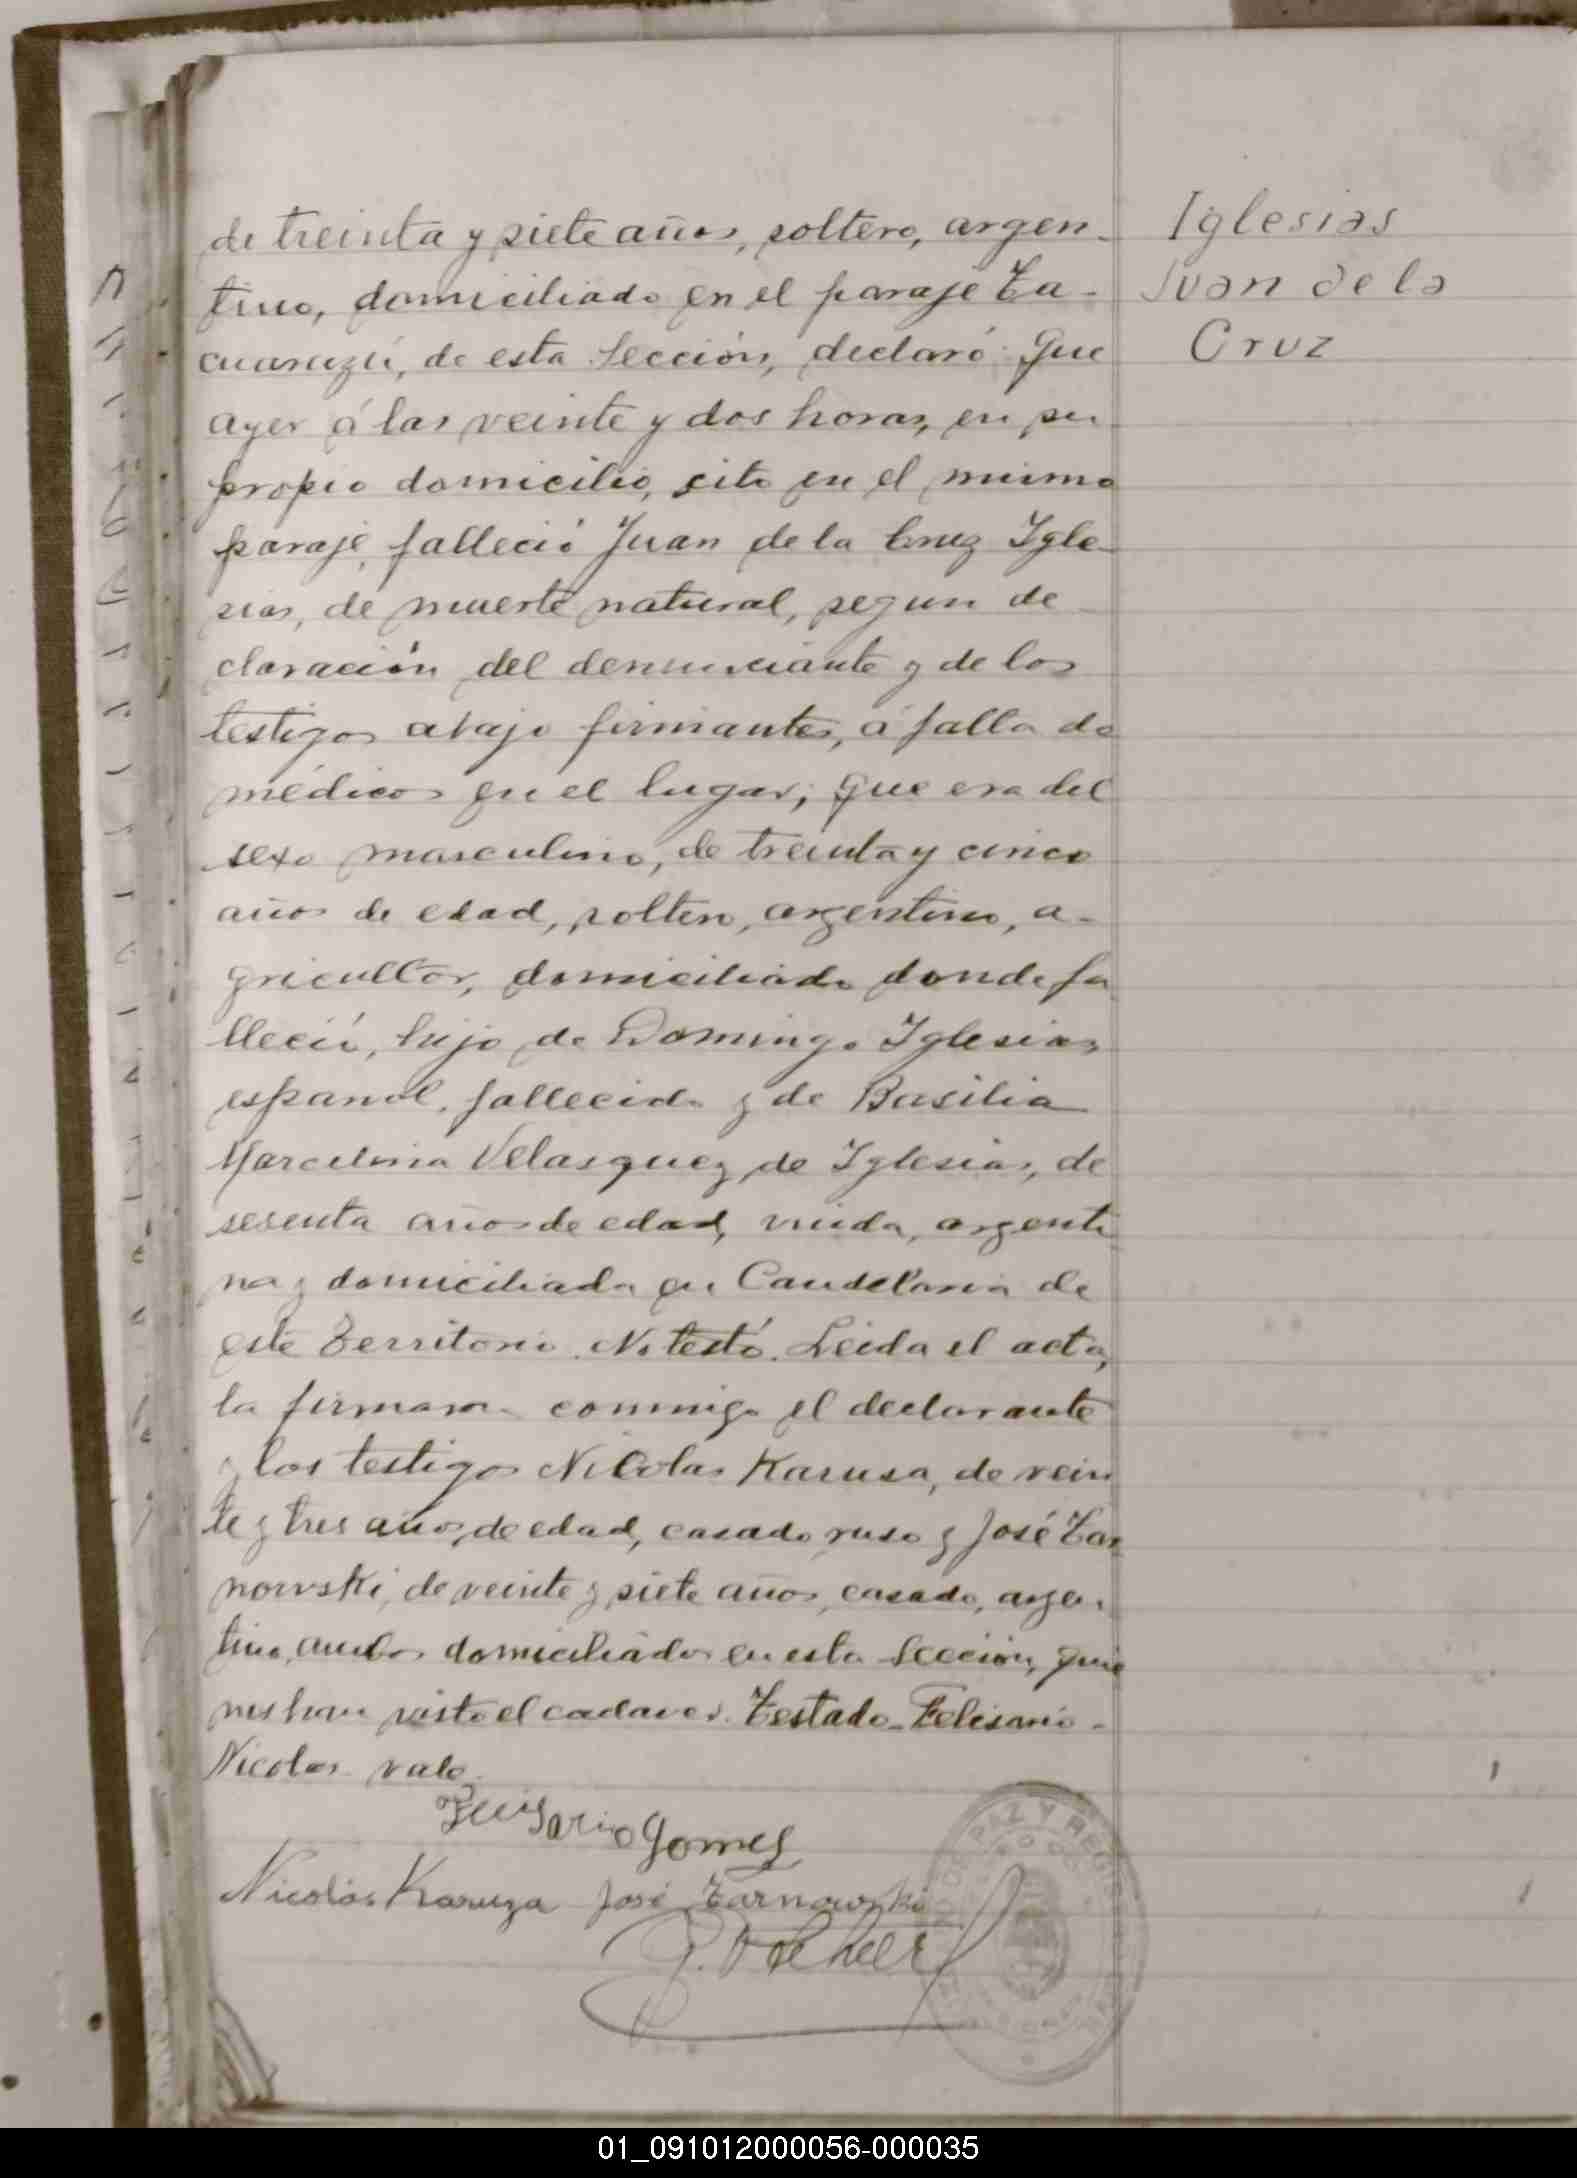 de treinta y siete años, soltero, argen-
tino, domiciliado en el paraje Ta-
cuaruzú, de esta Sección, declaró: Que
ayer á las veinte y dos horas, en su
propio domicilio, sito en el mismo
paraje, falleció Juan de la Cruz Igle-
sias, de muerte natural, segun de-
claración del denunciante y de los
testigos abajo firmantes, á falla de
médicos en el lugar; que era del
sexo masculino, de treinta y cinco
años de edad, soltero, argentino, a-
gricultor, domiciliado donde fa
lleció, hijo de Domingo Iglesias,
español, fallecido y de Basilia
Marcelina Velasquez de Iglesias, de
sesenta años de edad, viuda, argenti
na y domiciliada en Candelaria de
este Territorio. No testó. Leida el acta,
la firmaron conmigo el declarante
y los testigos Nicolas Karusa, de vein
te y tres años de edad, casado, ruso y José Tar
nowski, de veinte y siete años, casado, argen-
tino, ambos domiciliados en esta Sección, quie
nes han visto el cadaver. Testado-Felisario-
Nicolas vale.
Felisario Gomes
Nicolás Karuza José Tarnowski
Iglesias
Juan de la
Cruz
DE PAZ Y REGIS
01_091012000056-000035